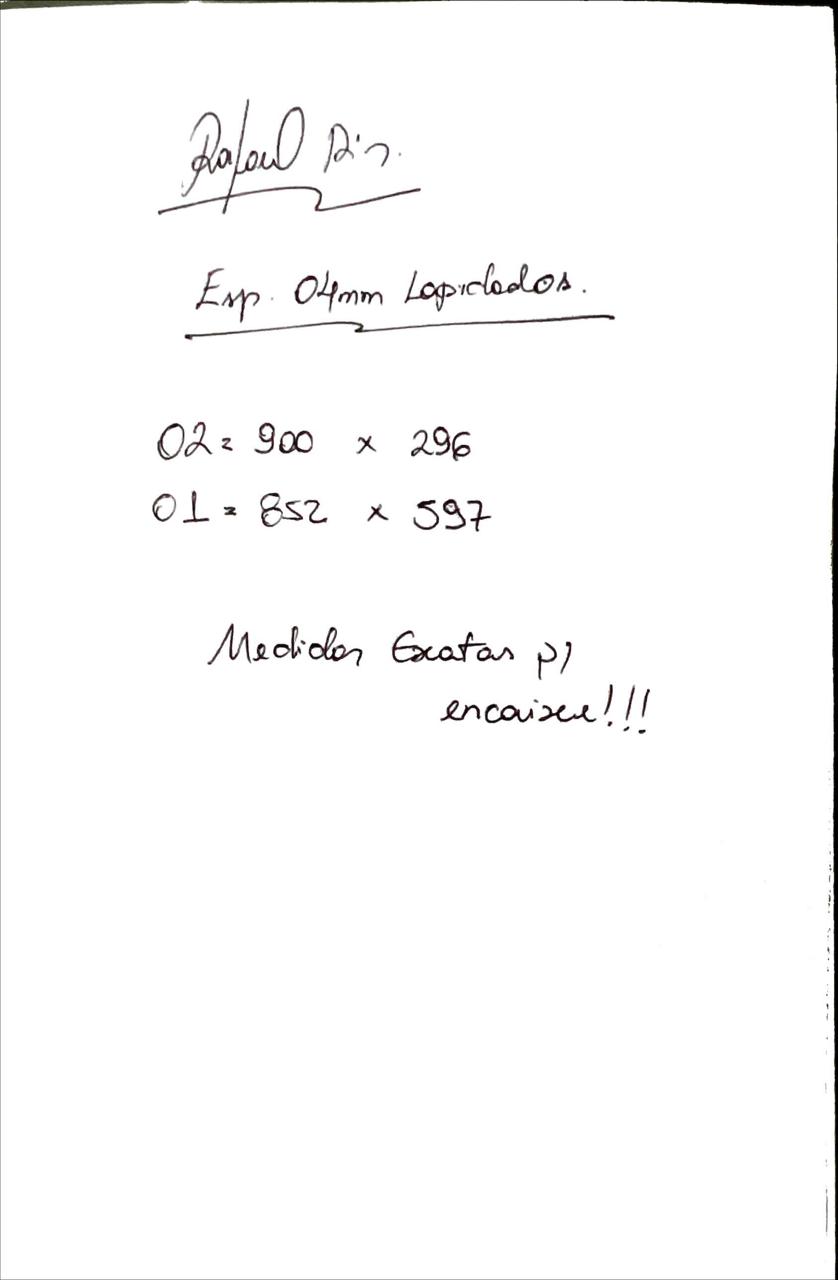 Rafael
Esp. 04mm Lapidados.
02 = 900 x 296
01 = 852 x 597
Medidas Exatas p/
encaixe!!!